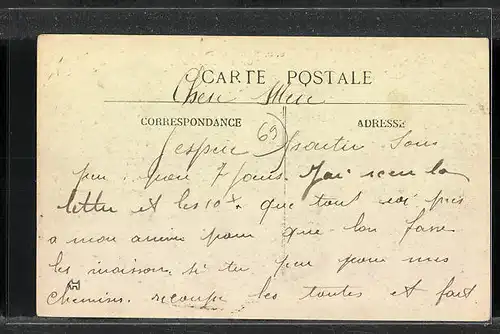 CARTE POSTALE
Chere Mère
CORRESPONDANCE ADRESSE
69
J'espère partir sous
peu 7 jours J'ai recu la
lettre et les 10 x que tout soi pres
a mon arrivée pour que lon fasse
les moisson si tu peu pour mes
chemises recoupe les toutes et fait